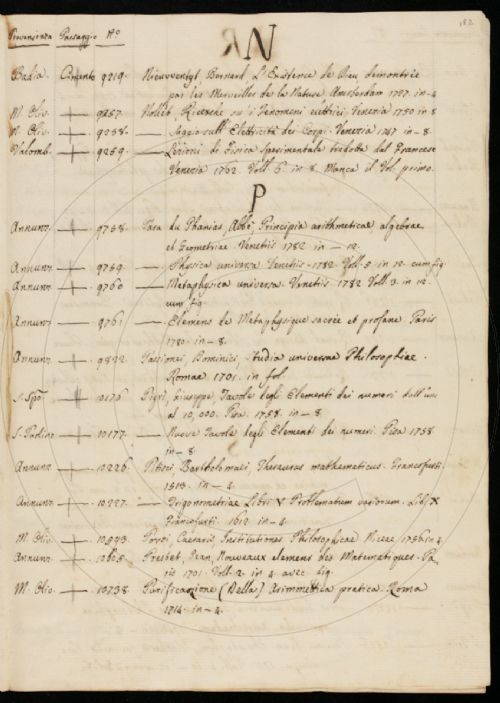 182
Provenienza Passaggio No
N
Badia. Cimento 9219. Nieuwentyt Bernard, L'Existence de Dieu demontrée
par les Merveilles de la Nature Amsterdam 1727. in-4
M. Oliv. 9257. Nollet, Ricerche su'i Fenomeni elettrici, Venezia 1750 in 8
M. Oliv. 9258. Saggio sull'Elettricità dei Corpi. Venezia 1747 in-8.
Valomb. 9259. Lezioni di Fisica Sperimentale tradotta dal Francese
Venezia 1762. Voll. 6. in 8. Manca il Vol. primo.
P
Annunz. 9758. du Phanjas, Abbé, Principia arithmeticae algebrae
et Geometriae Venetiis 1782 in-12.
Annunz. 9759. Physica universa Venetiis 1782. Voll. 5. in 12. cum fig.
Annunz. 9760 Metaphysica universa Venetiis 1782 Voll. 3. in 12.
cum fig.
Annunz. 9761 Elemens de Metaphysique sacrée et profane Paris
1780. in-8.
Annunz. 9822. Passionei, Dominici, Studia universae Philosophiae.
Romae 1701. in fol.
S. Spo. 10176 Pigri, Giuseppe, Tavole degli Elementi dei numeri dall'uno
al 10,000. Pisa. 1758. in-8
S. Paolino 10177. Nuove Tavole degli Elementi dei numeri. Pisa 1758
in-8.
Annunz. 10226. Pitisci, Bartholomaei, Thesaurus mathematicus. Francofurti.
1613. in-4.
Annunz. 10227. Trigonometriae Libri V Problematum variorum. Lib. X
Francofurti. 1612 in-4.
M. Oliv. Caesaris Institutiones Philosophicae Nicae, 1756 in
Annunz. 10605. Prestet, Jean, Nouveaux elemens des Matematiques. Pa-
ris 1701. Voll. 2. in 4. avec fig.
M. Oliv. 10738. Purificazione (Dalla) Arimmetica pratica. Roma
1714. in-4.